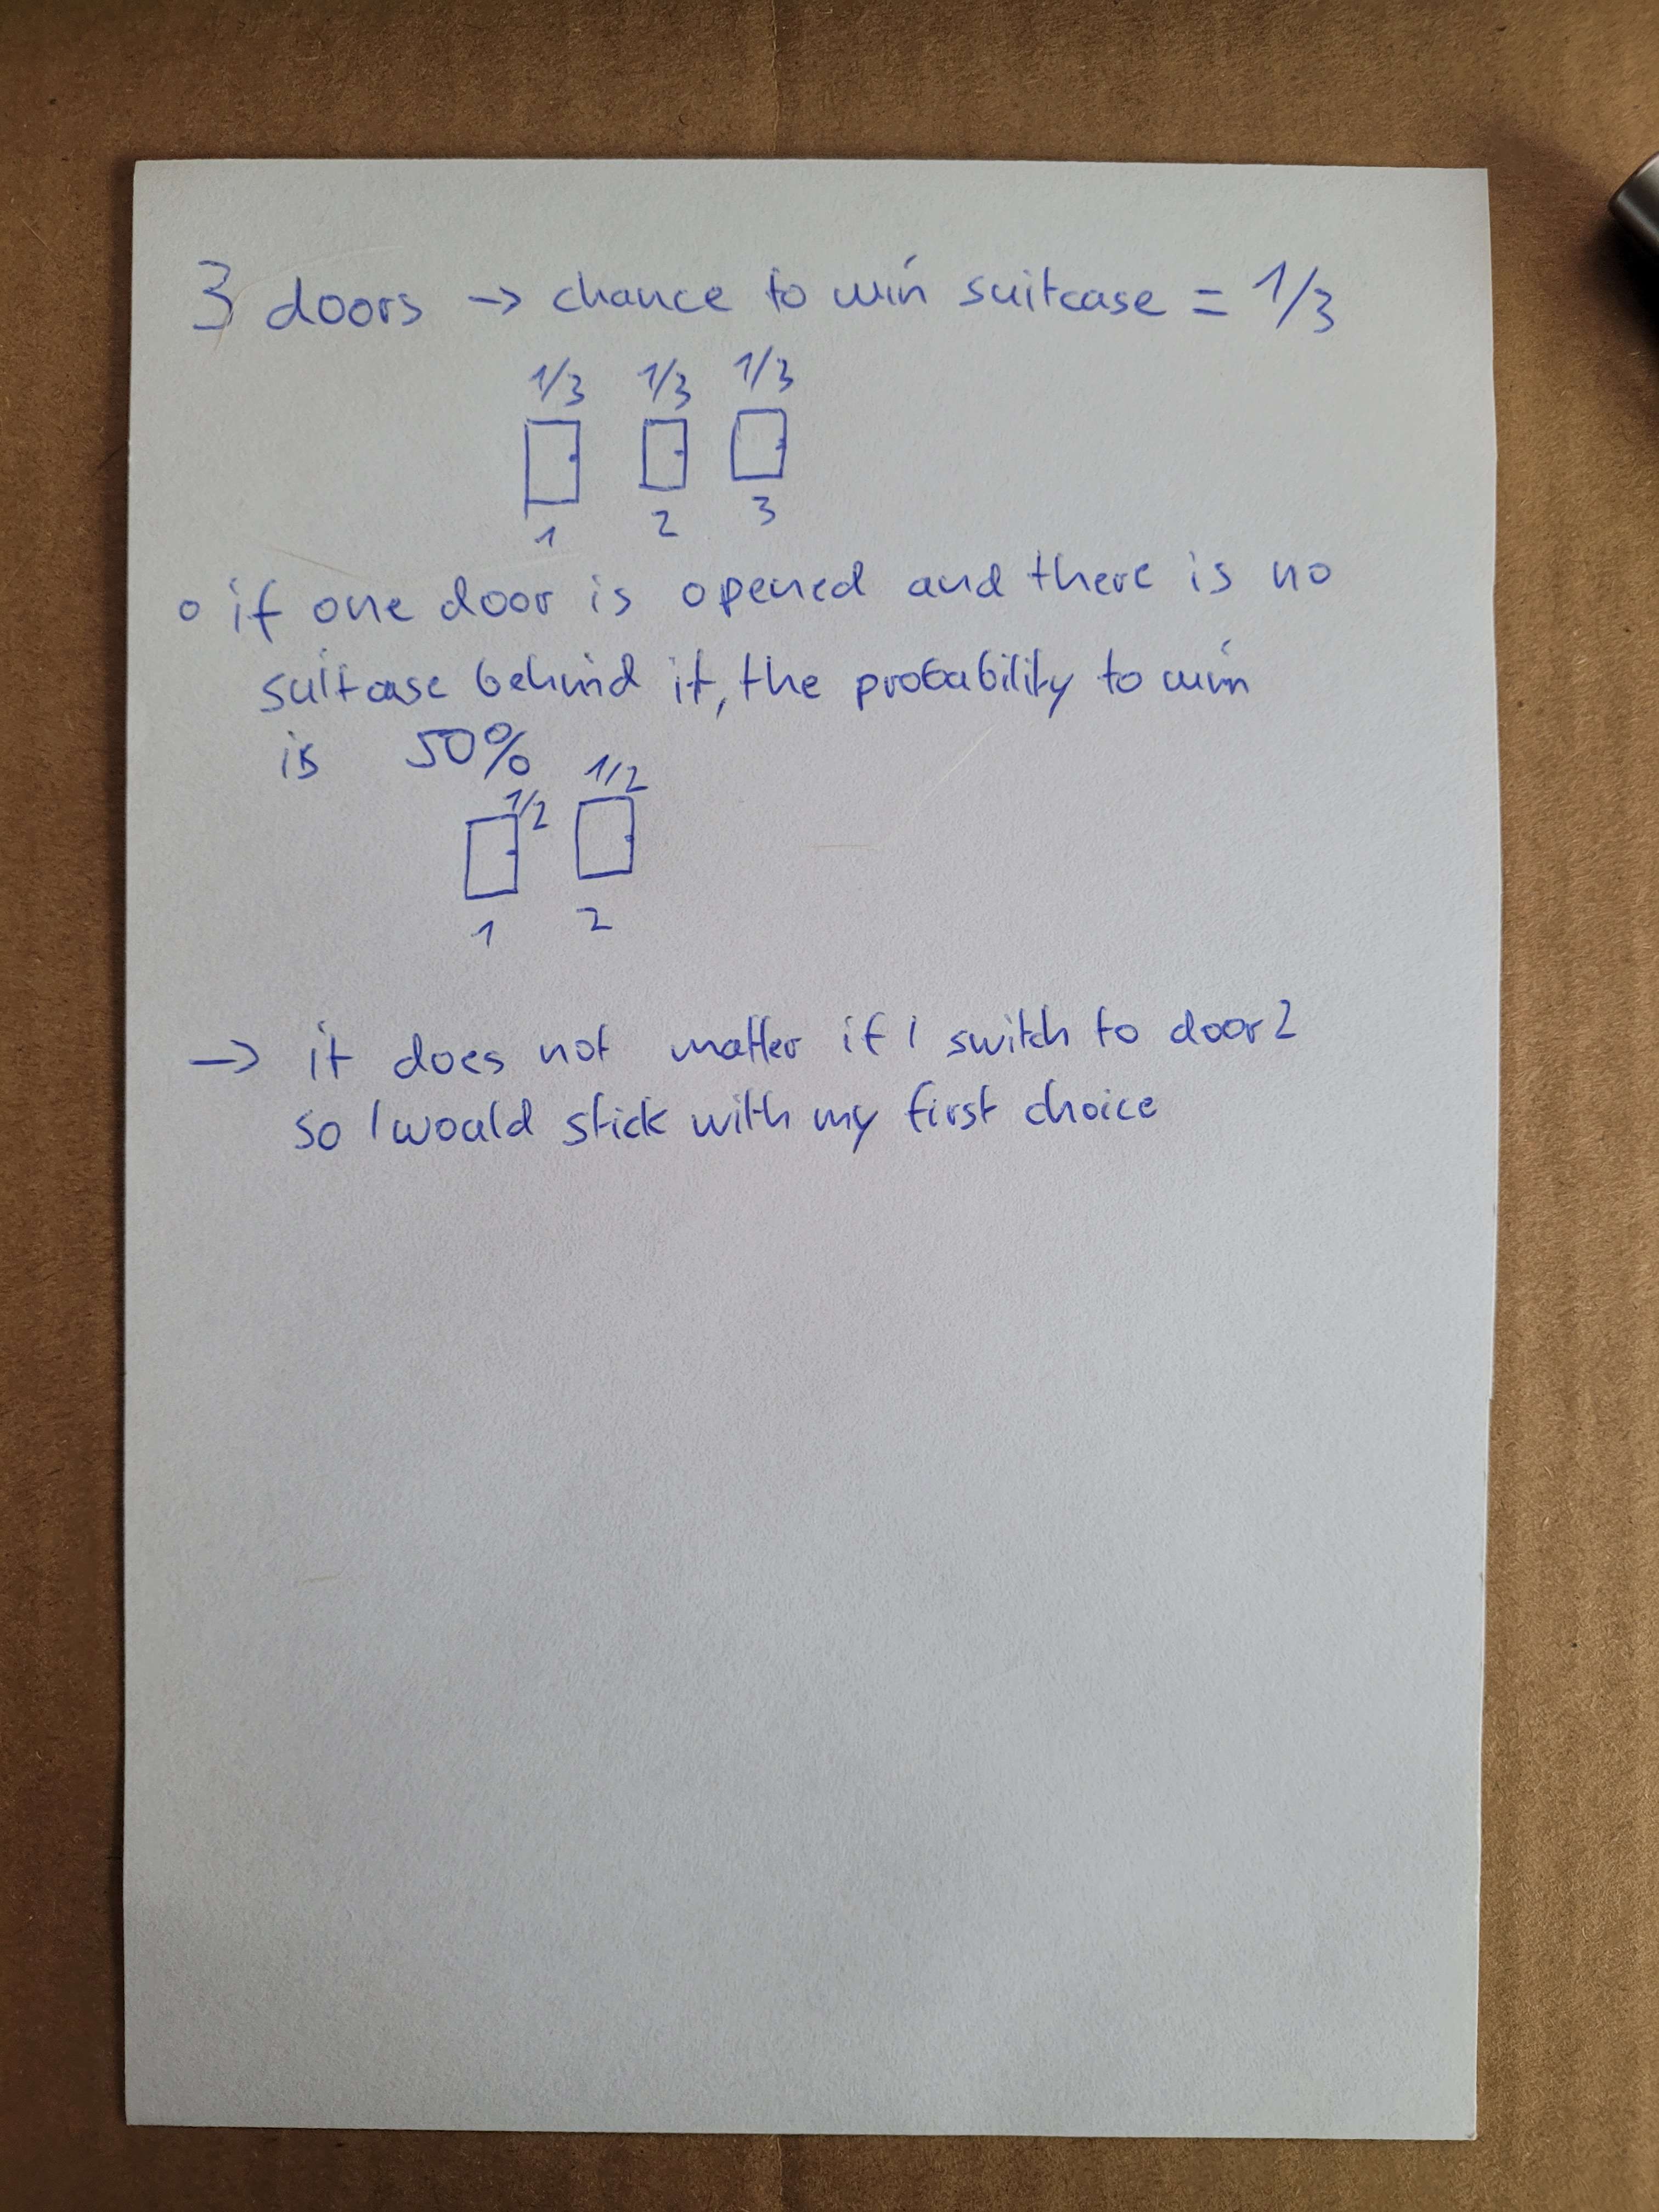 3 doors → chance to win suitcase = 1/3
1/3 1/3 1/3
1 2 3
o if one door is opened and there is no
suitcase behind it, the probability to win
is 50%
1/2 1/2
1 2
→ it does not matter if I switch to door 2
so I would stick with my first choice